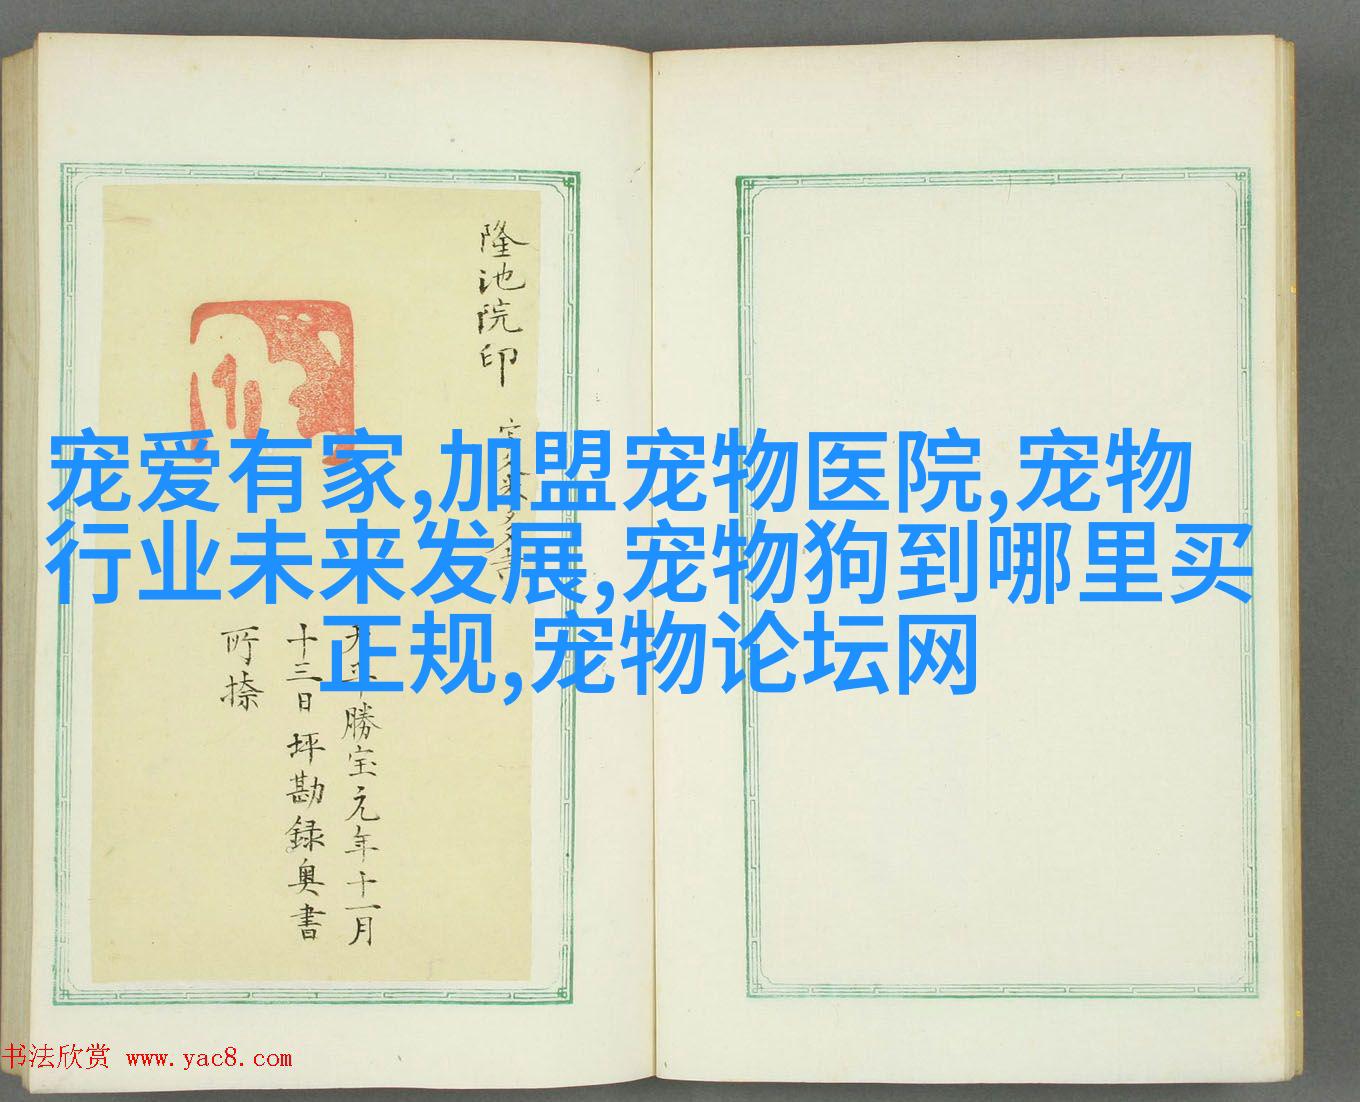 宠爱有家,加盟宠物医院,宠物
行业未来发展,宠物狗到哪里买
正规,宠物论坛网
隆池院印
勝宝元年十一月
十三日 坪勘録奥書
所捺
书法欣赏 www.yac8.com